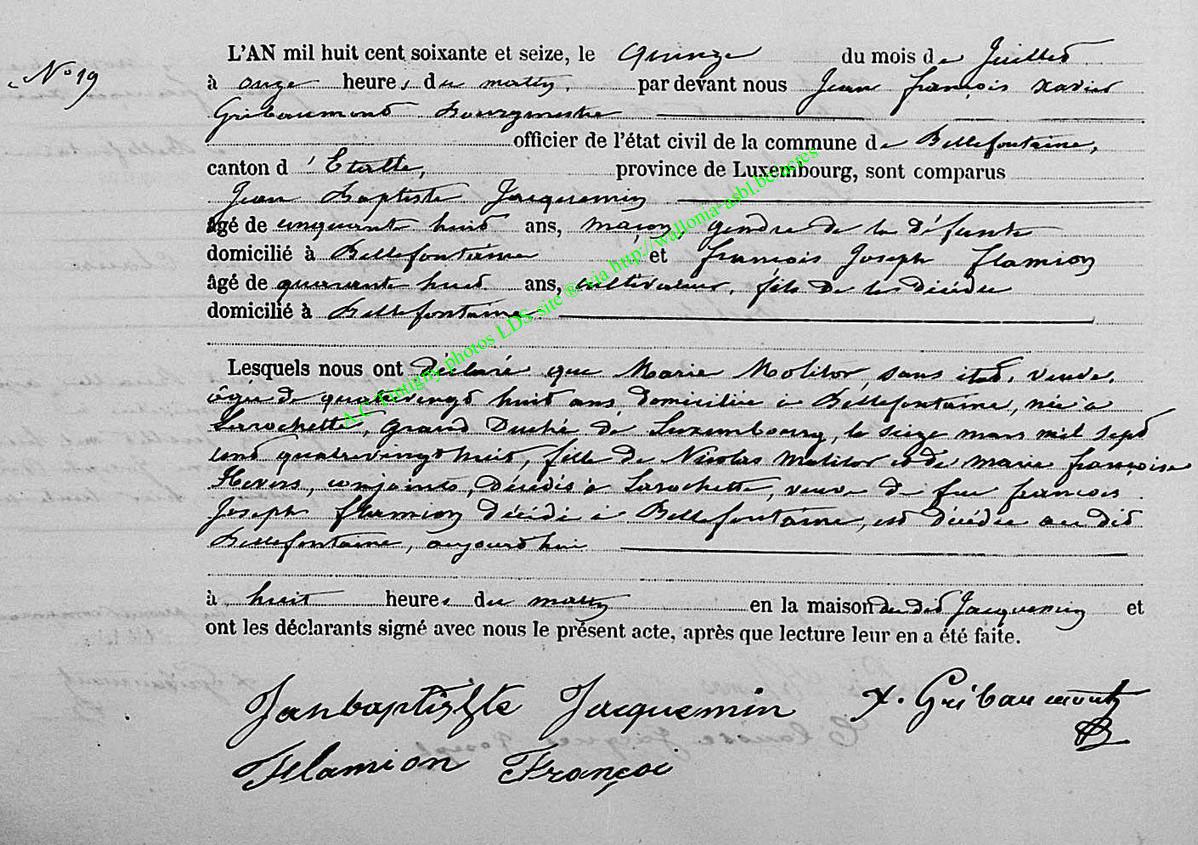 N° 19
L'AN mil huit cent soixante et seize, le quinze du mois de Juillet
à onze heures du matin, par devant nous Jean françois xavier
Gribaumont Bourgmestre
officier de l'état civil de la commune de Bellefontaine,
canton d'Etalle, province de Luxembourg, sont comparus
Jean Baptiste Jacquemin
âgé de cinquante huit ans, maçon, gendre de la défunte
domicilié à Bellefontaine et françois Joseph Flamion
âgé de quarante huit ans, cultivateur, fils de la décédée
domicilié à Bellefontaine
Lesquels nous ont déclaré que Marie Molitor, sans état, veuve,
âgée de quatrevingt huit ans, domiciliée à Bellefontaine, née à
Larochette, grand Duché de Luxembourg, le seize mars mil sept
cent quatrevingt huit, fille de Nicolas Molitor et de marie françoise
conjoints, décédés à Larochette, veuve de feu françois
Joseph flamion décédé à Bellefontaine, est décédée au dit
Bellefontaine, aujourd'hui
à huit heures du matin en la maison du dit Jacquemin et
ont les déclarants signé avec nous le présent acte, après que lecture leur en a été faite.
Janbaptiste Jacquemin X. Gribaumont
Flamion Françoi
A.G. Tintigny photos LDS site @ via http://wallonia-asbl.be/actes